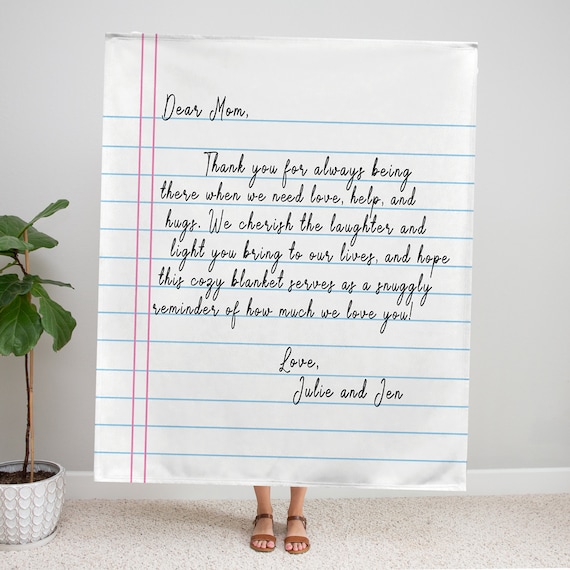 Dear Mom,
Thank you for always being
there when we need love, help, and
hugs. We cherish the laughter and
light you bring to our lives, and hope
this cozy blanket serves as a snuggly
reminder of how much we love you!
Love,
Julie and Jen